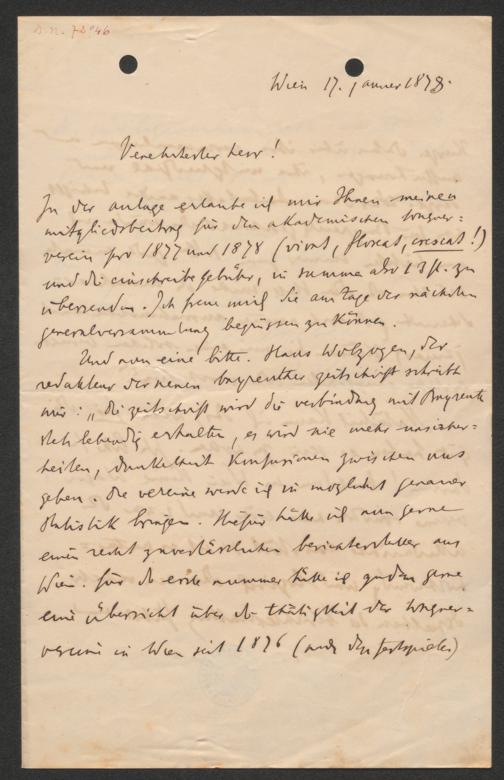 Wien 17. januar 1878.
Verehrtester herr!
In der anlage erlaube ich mir Ihnen meinen
mitgliedsbeitrag für den akademischen wagner=
verein pro 1877 und 1878 (vivat, floreat, crescat!)
und die einschreibegebühr, in summa also 13 fl. zu
übersenden. Ich freue mich Sie am tage der nächsten
generalversammlung begrüssen zu können.
Und nun eine bitte. Hans Wolzogen, der
redakteur der neuen bayreuther zeitschrift schreibt
mir: „die zeitschrift wird die verbindung mit Bayreuth
stets lebendig erhalten, es wird nie mehr
dunkelheit konfusionen zwischen uns
geben. die vereine werde ich in möglichst genauer
statistik bringen. Hiefür hätte ich nun gerne
einen recht zuverlässlichen berichterstatter aus
Wien. für die erste nummer hätte ich gerne
eine übersicht über die thätigkeit der wagner=
vereine in Wien seit 1876 (nach den festspielen)